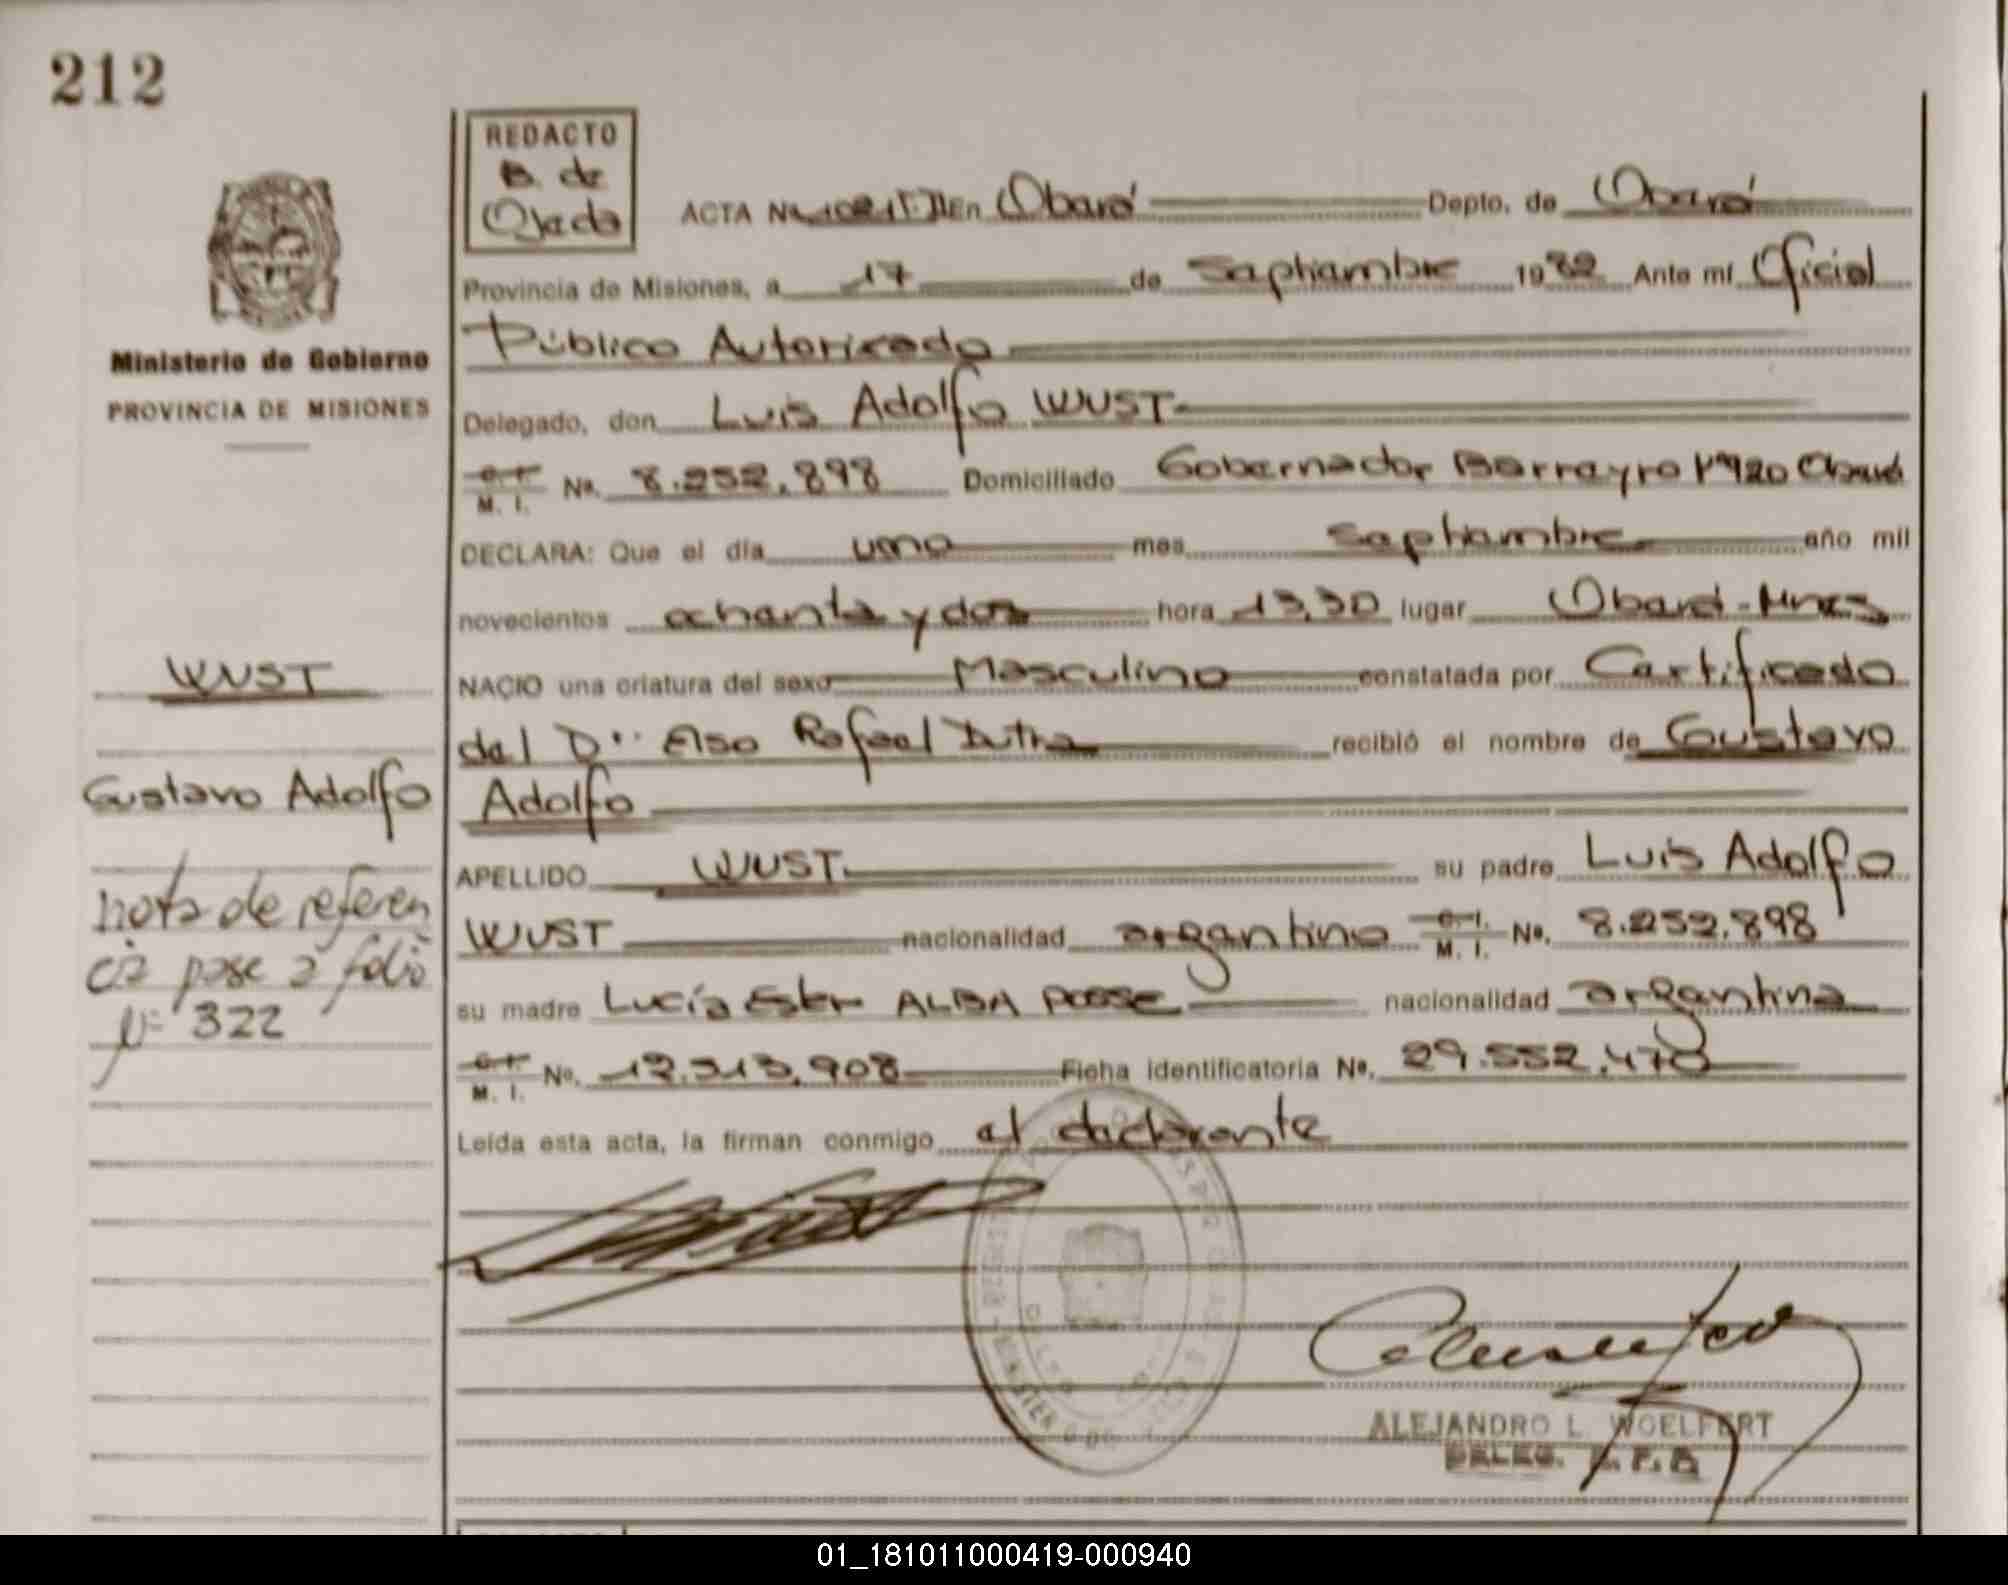 212
REDACTO
B. de
Ojeda
ACTA Nº 1021 T. II En Oberá Depto. de Oberá
Provincia de Misiones, a 17 de Septiembre 1982 Ante mí Oficial
Público Autorizado
Ministerio de Gobierno
PROVINCIA DE MISIONES
Delegado, don Luis Adolfo WUST
C. I. M. I. Nº. 8.252.898 Domiciliado Gobernador Barreyro Nº 920 Oberá
DECLARA: Que el día uno mes Septiembre año mil
novecientos ochenta y dos hora 13,30 lugar Oberá - Mnes
WUST
NACIO una criatura del sexo Masculino constatada por Certificado
del Dr. Elso Rafael Dutra recibió el nombre de Gustavo
Gustavo Adolfo
Adolfo
APELLIDO WUST su padre Luis Adolfo
nota de referen
cia pase a folio
Nº 322
WUST nacionalidad argentino C. I. M. I. Nº. 8.252.898
su madre Lucía Ester ALBA POSSE nacionalidad argentina
C. I. M. I. Nº. 12.313.908 Ficha identificatoria Nº. 29.552.470
Leída esta acta, la firman conmigo el declarante
ALEJANDRO L. WOELFERT
DELEG.
01_181011000419-000940